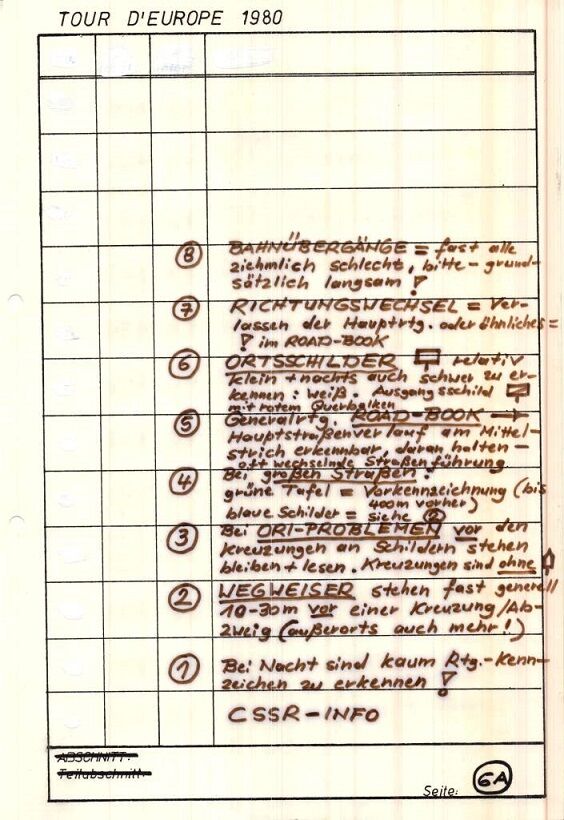 TOUR D'EUROPE 1980
⑧ BAHNÜBERGÄNGE = fast alle
ziehmlich schlecht, bitte - grund-
sätzlich langsam!
⑦ RICHTUNGSWECHSEL = Ver-
lassen der Hauptrtg. oder ähnliches =
! im ROAD-BOOK
⑥ ORTSSCHILDER relativ
klein + nachts auch schwer zu er-
kennen: weiß. Ausgangsschild
mit rotem Querbalken
⑤ Generalrtg. ROAD-BOOK →
Hauptstraßenverlauf am Mittel-
strich erkennbar, daran halten -
oft wechselnde Straßenführung
④ Bei großen Straßen:
grüne Tafel = Vorkennzeichnung (bis
400m vorher)
blaue Schilder = siehe ②
③ Bei ORI-PROBLEMEN vor den
Kreuzungen an Schildern stehen
bleiben + lesen. Kreuzungen sind ohne
② WEGWEISER stehen fast generell
10-30m vor einer Kreuzung/Ab-
zweig (außerorts auch mehr!)
① Bei Nacht sind kaum Rtg.-Kenn-
zeichen zu erkennen!
CSSR-INFO
ABSCHNITT:
Teilabschnitt:
Seite: 6A